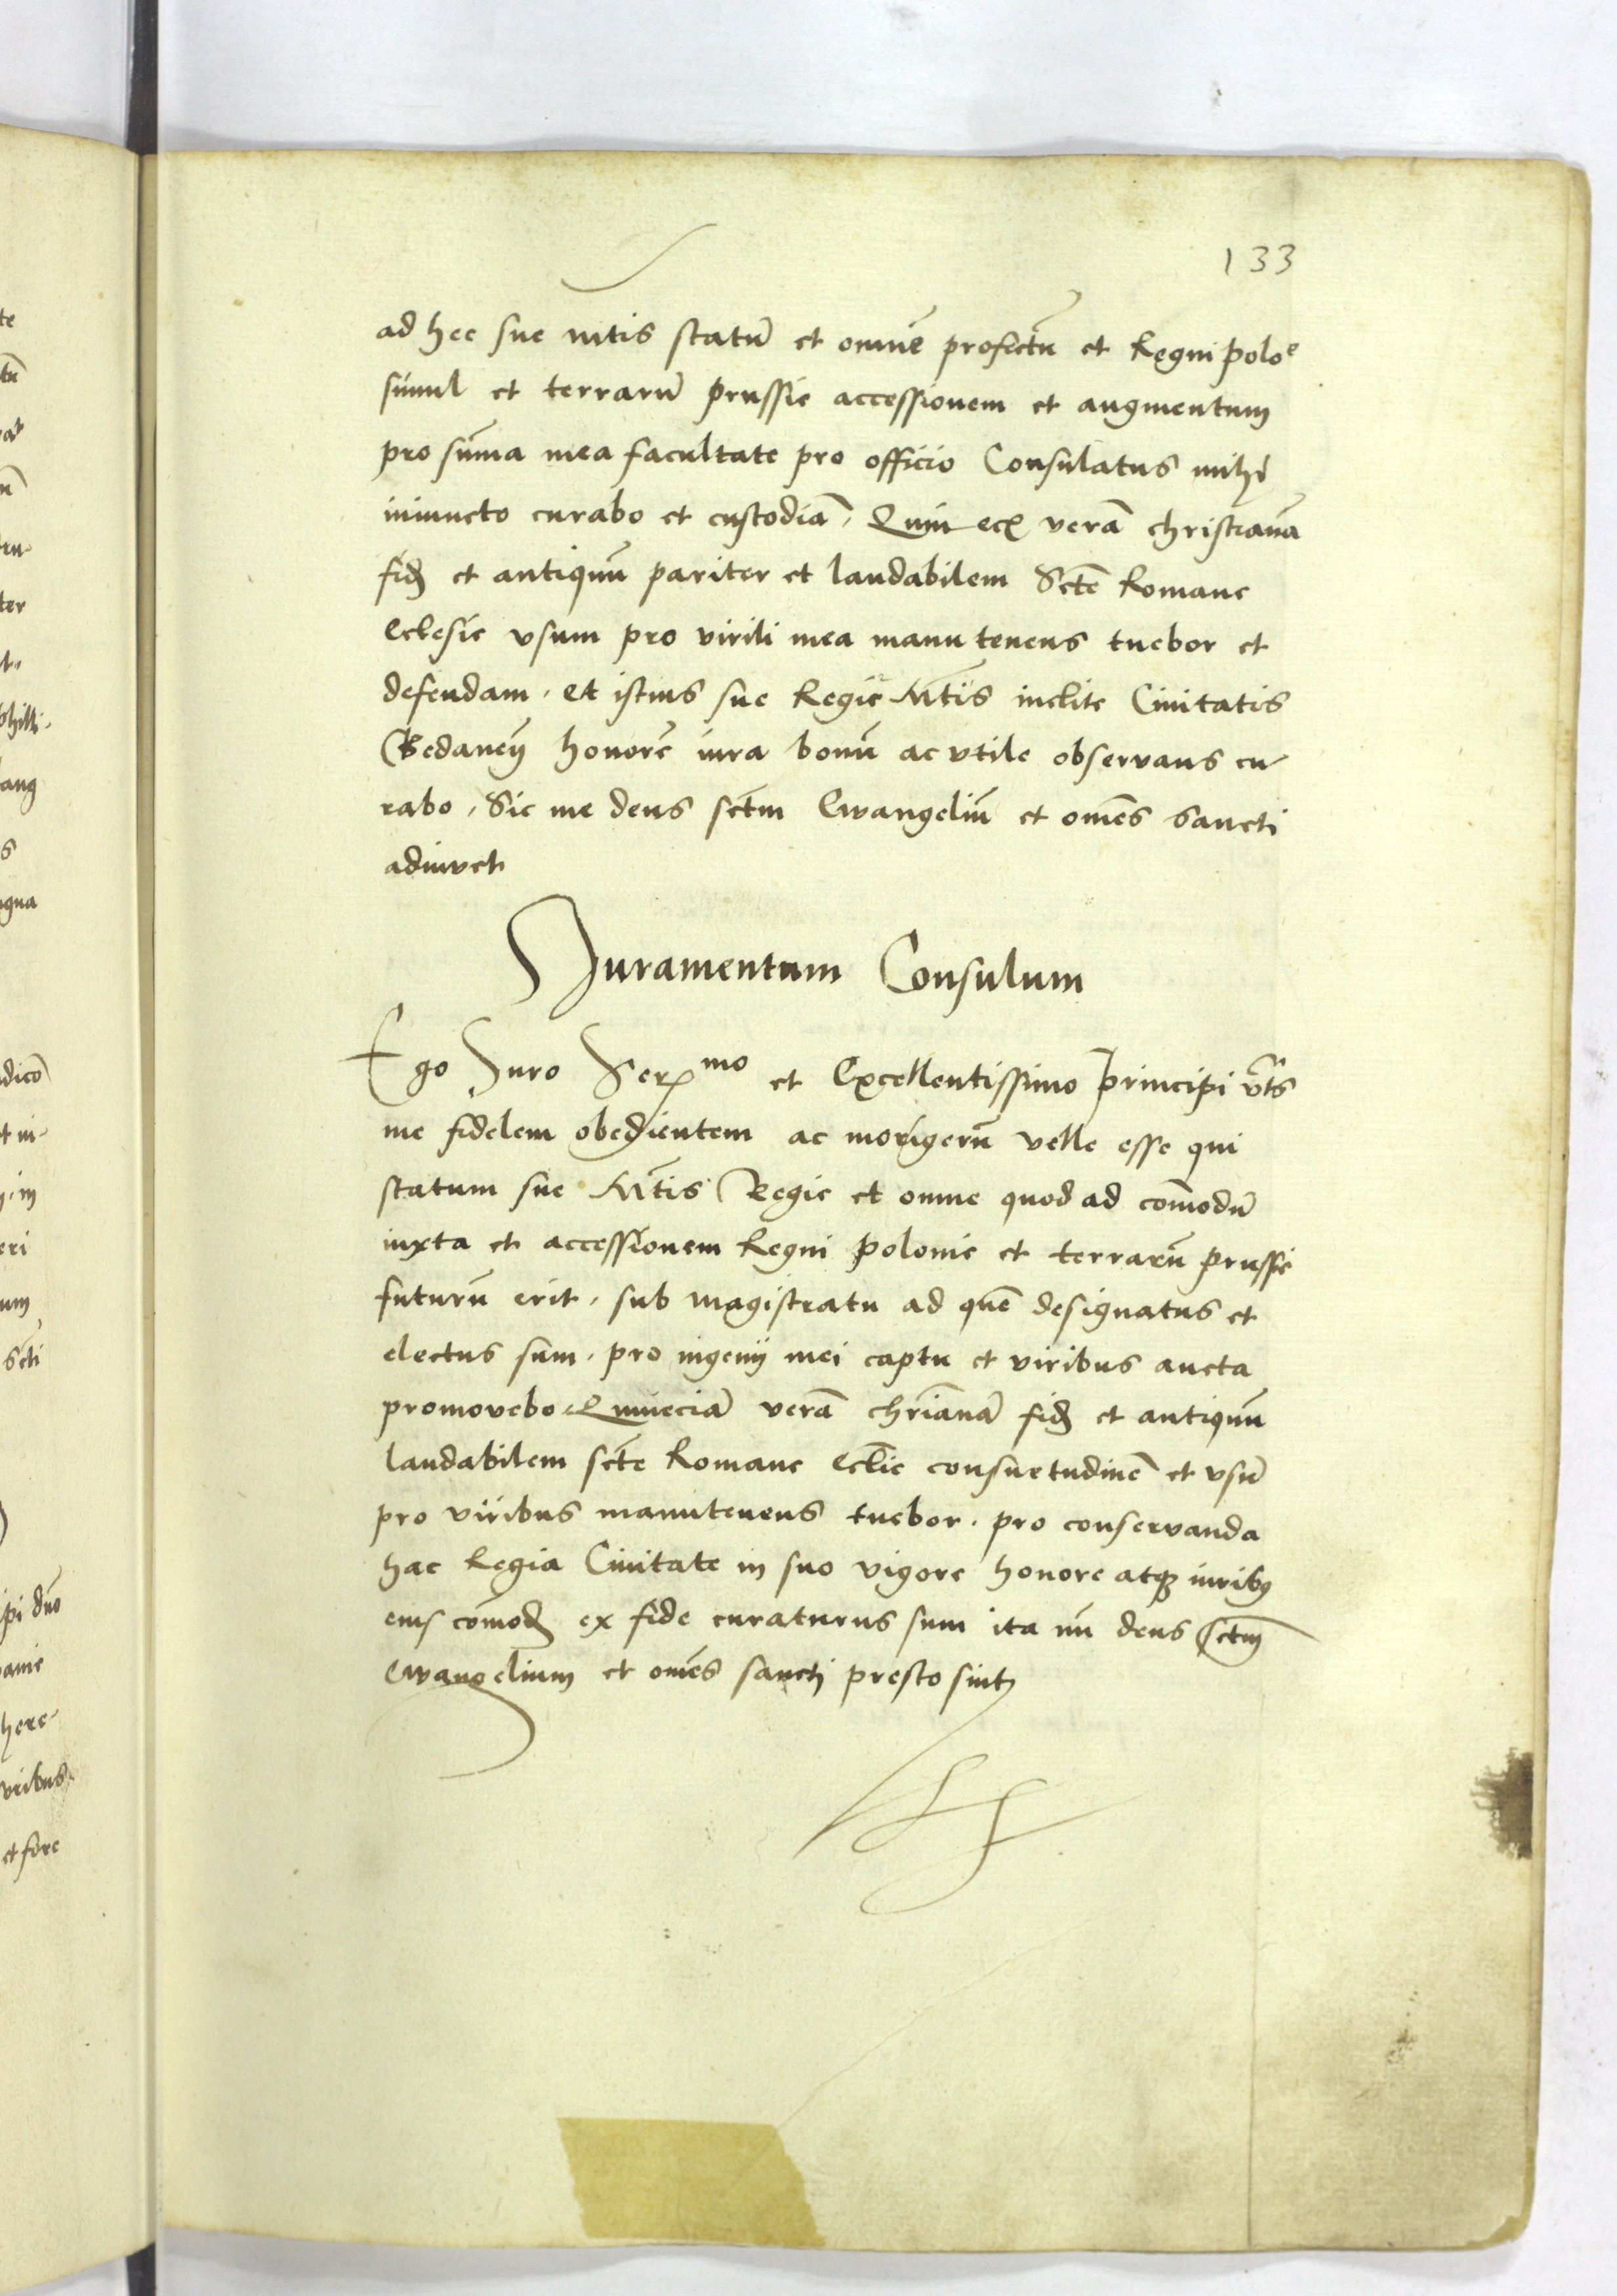 133
ad hec sue mtis statu̅ et omne̅ profectu̅ et Regni poloe
simul et terraru̅ prussie accessionem et augmentum
pro su̅ma mea facultate pro officio Consulatus mihi
iniuncto curabo et custodia̅, Quin ec͂ vera̅ christiana̅
fid͂ et antiquu̅ pariter et laudabilem Scte̅ Romane
Eclesie vsum pro virili mea manu tenens tuebor et
defendam, et istius sue Regie Mt̅is inclite Ciuitatis
Gedanen̅ honore̅ iura bonu̅ ac vtile observans cu-
rabo, Sic me deus sct̅m Ewangeliu̅ et om̅es sancti
adiuvet
Juramentum Consulum
Ego Juro Ser͂mo et Excellentissimo principi v̅ts
me fidelem obedientem ac morigeru̅ velle esse qui
statum sue Mt̅is Regie et omne quod ad com̅odu̅
iuxta et accessionem Regni polonie et terraru̅ prussie
futuru̅ erit, sub magistratu ad que̅ designatus et
electus sum, pro ingenij mei captu et viribus aucta
promovebo Quinecia̅ vera̅ chr̅iana̅ fid͂ et antiquu̅
laudabilem sct̅e Romane Ecl̅ie consuetudine̅ et vsu̅
pro viribus manutenens tuebor, pro conservanda
hac Regia Ciuitate in suo vigore honore atq͂ iurib9
eius com̅od͂ ex fide curaturus sum ita m̅ deus sct̅m
Ewangelium et om̅es sancti presto sint
te
ter
philli-
ang
s
gna
dico̅
t in-
in
eri
um
scti
ipi d̅no
anie
here-
viribus
et fore